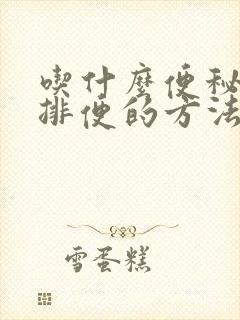 喫什麼便秘
排便的方法
雪蛋糕